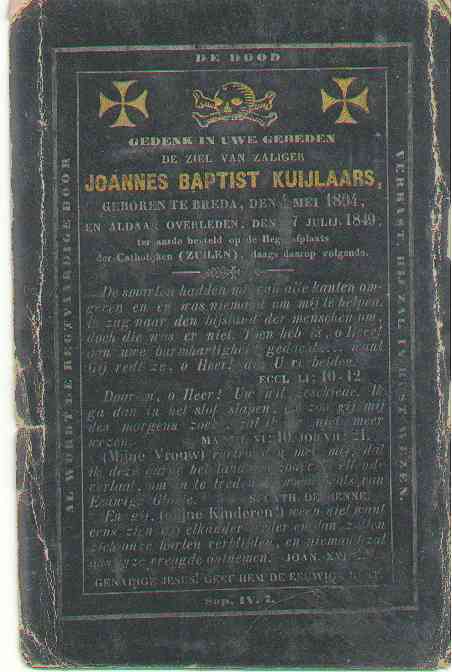 DE DOOD
GEDENK IN UWE GEBEDEN
DE ZIEL VAN ZALIGER
JOANNES BAPTIST KUIJLAARS,
GEBOREN TE BREDA, DEN MEI 1804,
EN ALDAAR OVERLEDEN, DEN 7 JULIJ 1849,
ter aarde besteld op de Begraafplaats
der Catholijken (ZUILEN), daags daarop volgende.
De smarten hadden mij van alle kanten om-
geven en er was niemand om mij te helpen.
Ik zag naar den bijstand der menschen om,
doch die was er niet. Toen heb ik, o Heer!
aan uwe barmhartigheid gedacht want
Gij redt ze, o Heer! die U verbeiden.
ECCL. LI: 10-12.
Daarom, o Heer! Uw wil geschiede. Ik
ga dan in het stof slapen, en zoo gij mij
des morgens zoekt, zal ik niet meer
wezen. MATTH. VI: 10. JOB VII: 21.
(Mijne Vrouw) met mij, dat
ik deze aarde, het land van ellende
verlaat, om in te treden van
Eeuwige Glorie. S. CATH. DE SIENNE.
En gij, (mijne Kinderen!) ween niet want
eens zien wij elkander weder en dan zullen
zich onze harten verblijden, en niemand zal
ons onze vreugde ontnemen. JOAN. XVI
GENADIGE JESUS! GEEF HEM DE EEUWIGE RUST.
Sap. IV. 7.
AL WORDT DE REGTVAARDIGE DOOR
VERRAST, HIJ ZAL IN RUST WEZEN.